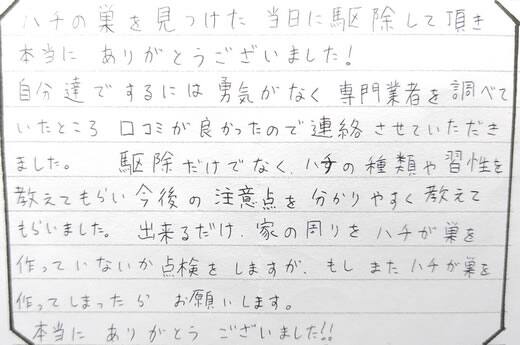 ハチの巣を見つけた当日に駆除して頂き
本当に ありがとうございました！
自分達でするには勇気がなく 専門業者を調べて
いたところ 口コミが良かったので連絡させていただき
ました。 駆除だけでなく、ハチの種類や習性を
教えてもらい今後の注意点を分かりやすく教えて
もらいました。 出来るだけ、家の周りをハチが巣を
作っていないか点検をしますが、もしまたハチが巣を
作ってしまったら お願いします。
本当に ありがとう ございました!!